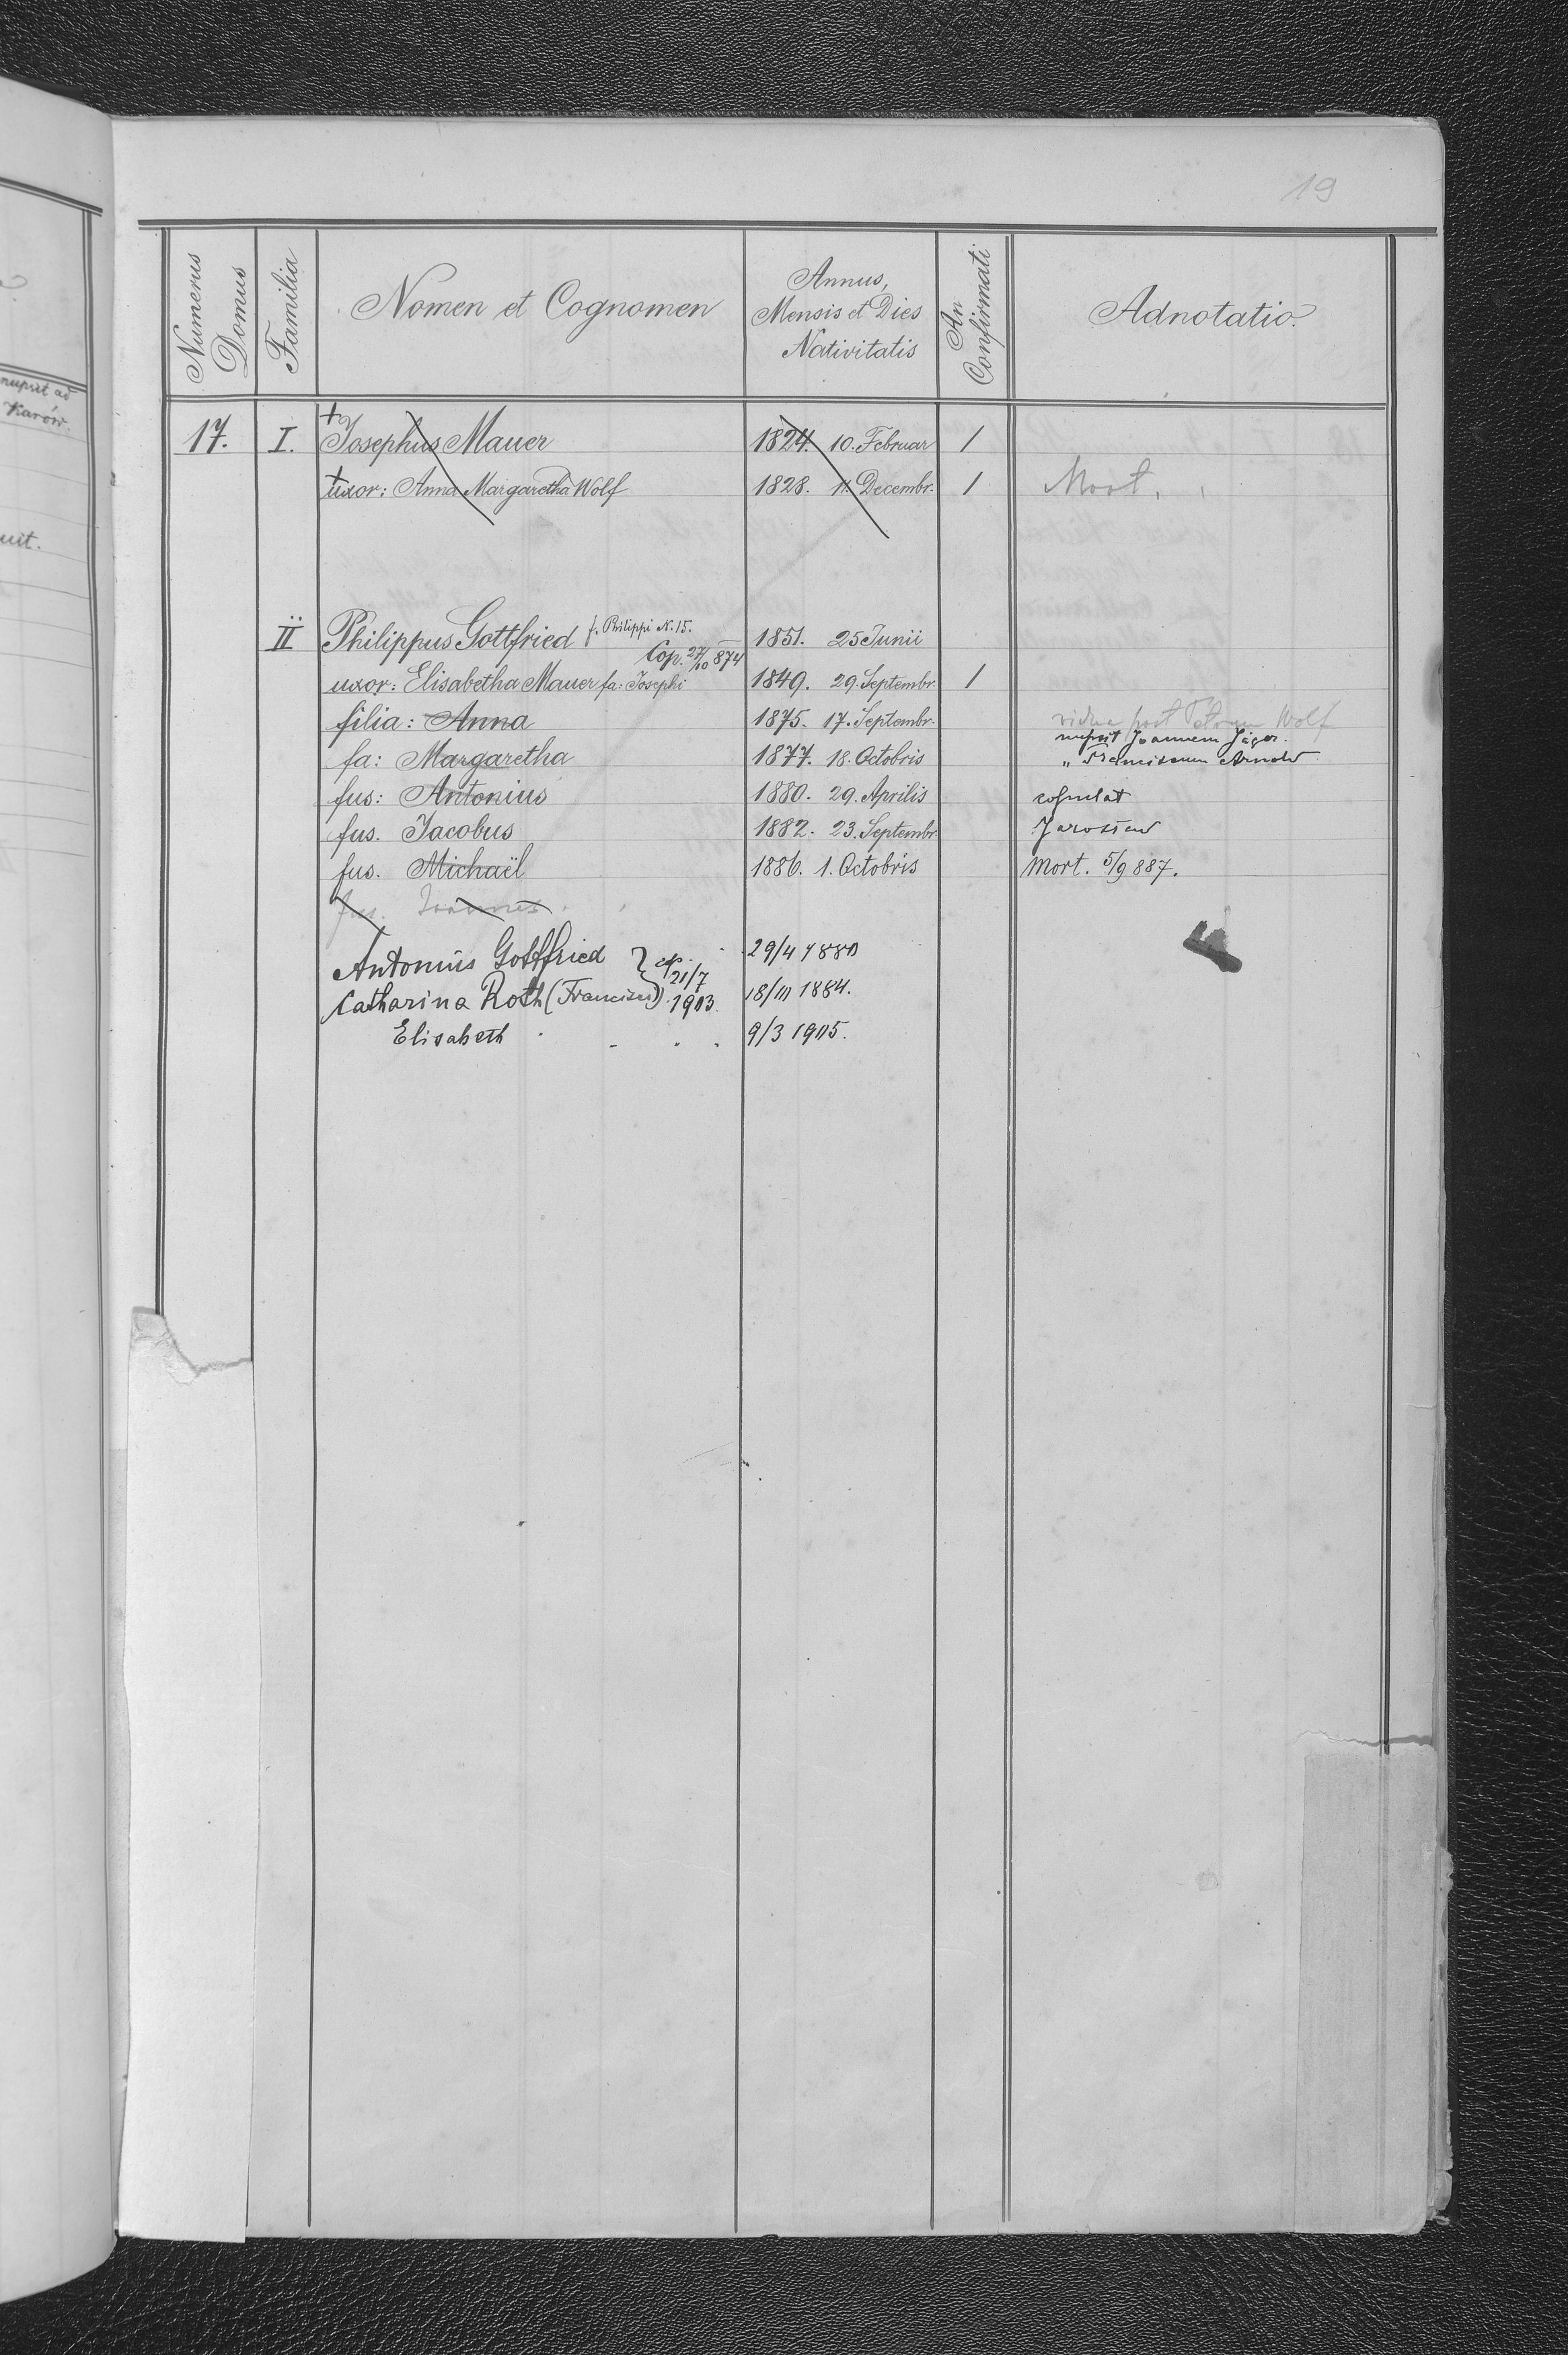 19
Numerus Domus
Familia
Nomen et Cognomen
Annus, Mensis et Dies Nativitatis
An Confirmati
Adnotatio.
nupsit ad
Karów.
uit.
17. I. + Josephus Mauer 1824. 10. Februar 1
+ uxor: Anna Margaretha Wolf 1828. 11. Decembr. 1 Mort.
II Philippus Gottfried f. Philippi N. 15. 1851. 25 Junii
Cop. 27/10 874
uxor: Elisabetha Mauer fa: Josephi 1849. 29. Septembr. 1
filia: Anna 1875. 17. Septembr. vidua post Petrum Wolf
nupsit Joannem Jäger.
fa: Margaretha 1877. 18. Octobris " Franciscum Arnold
fus: Antonius 1880. 29. Aprilis copulat
fus. Jacobus 1882. 23. Septembr Jarosław
fus. Michaël 1886. 1. Octobris Mort. 5/9 887.
fus. Joannes
Antonius Gottfried } cop. 29/4 1880
21/7
Catharina Roth (Francisci) 1903. 18/III 1884.
Elisabeth 9/3 1905.